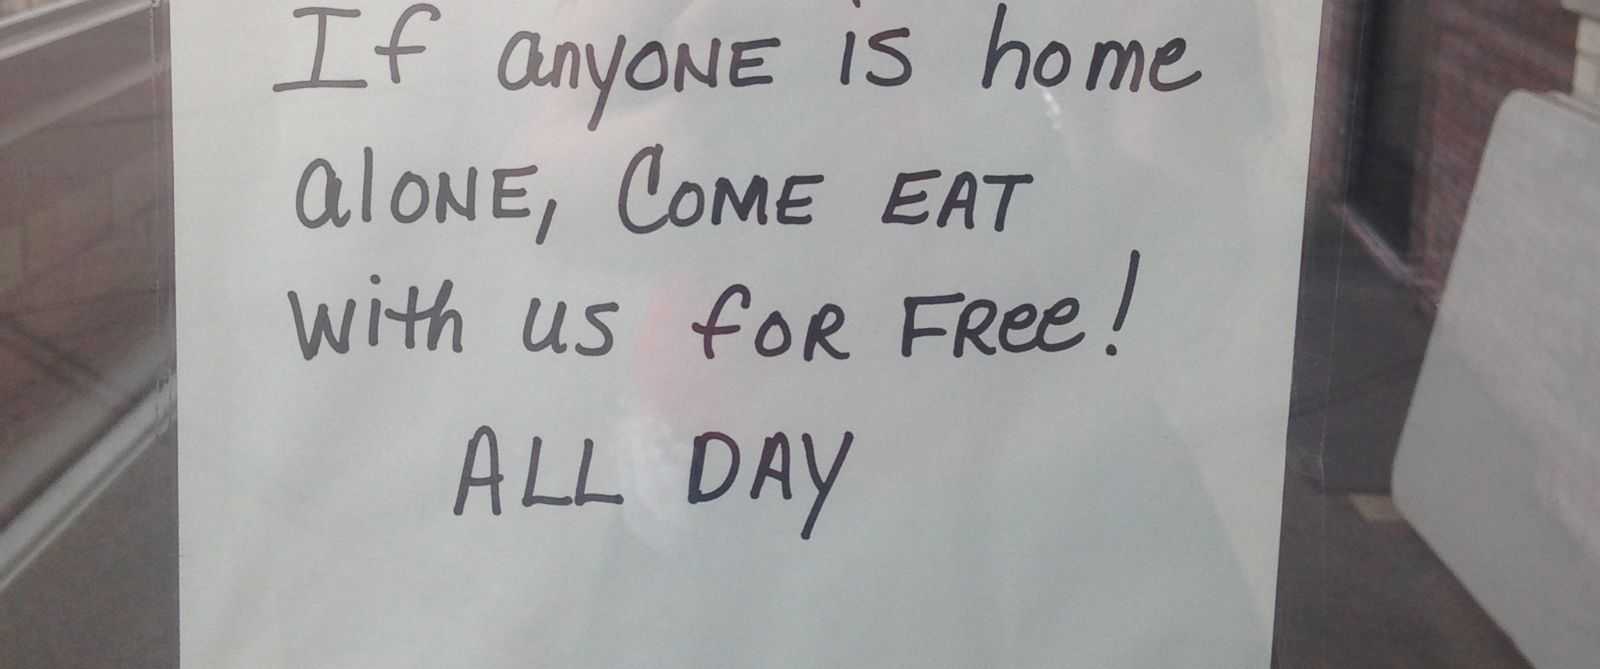 If anyONE is home
alONE, COME EAT
with us fOR FRee!
ALL DAY